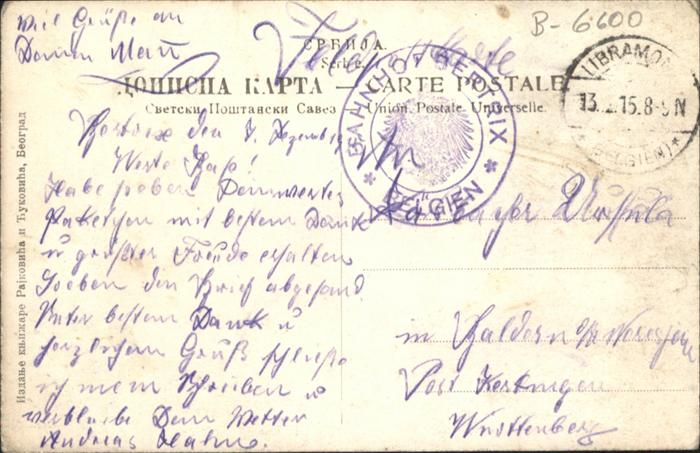 viel Grüße an
Deinen Mann
B-6600
Feldpostkarte
СРБИЈА.
Serbie.
ДОПИСНА КАРТА — CARTE POSTALE
Светски Поштански Савез Union Postale Universelle.
LIBRAMONT
15.8-9 N
(BELGIEN)
BAHNHOF BERTRIX
* BELGIEN *
Издање књижаре Рајковића и Ћуковића, Београд
den 7. Dezember
Werte
Habe soeben Dein wertes
Paketchen mit bestem Dank
u größter Freude erhalten
Soeben den Brief abgesand.
Unter bestem Dank u
herzlichem Gruß schließe
ich mein Schreiben u
verbleibe Dein Vetter
Andreas
An
Ursula
in
Post Kertingen
Württemberg